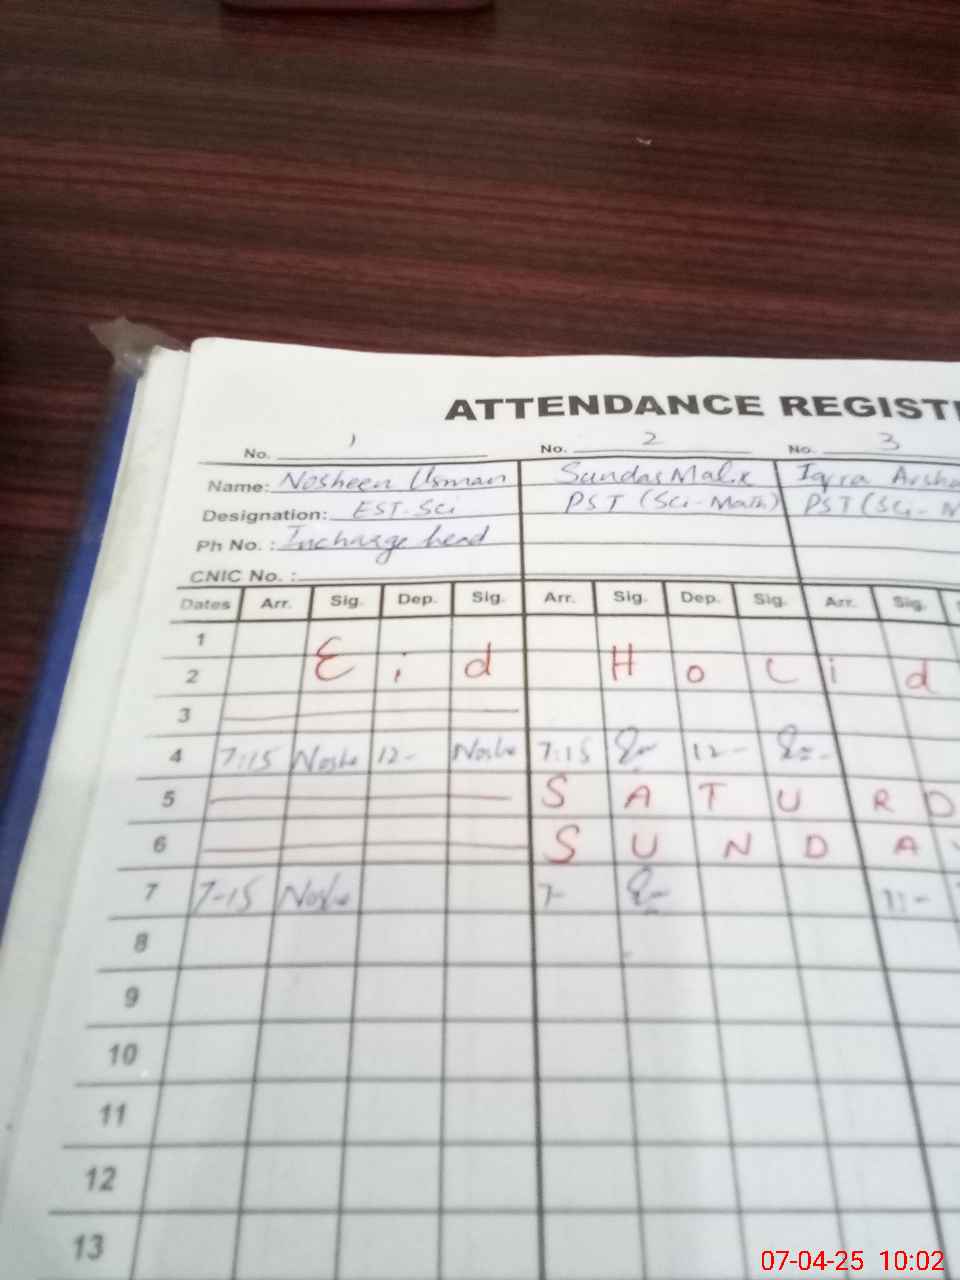 ATTENDANCE REGIST
No. 1 No. 2 No. 3
Name: Nosheen Usman Sundas Malik Iqra Arsha
Designation: EST-Sci PST (Sci-Math) PST (Sci-M
Ph No. : Incharge head
CNIC No. :
Dates Arr. Sig. Dep. Sig. Arr. Sig. Dep. Sig. Arr. Sig.
1
2 Eid Holid
3
4 7:15 Noshe 12- Noshe 7:15 12-
5 SATURD
6 SUNDAY
7 7-15 Noshe 7-
8
9
10
11
12
13
07-04-25 10:02